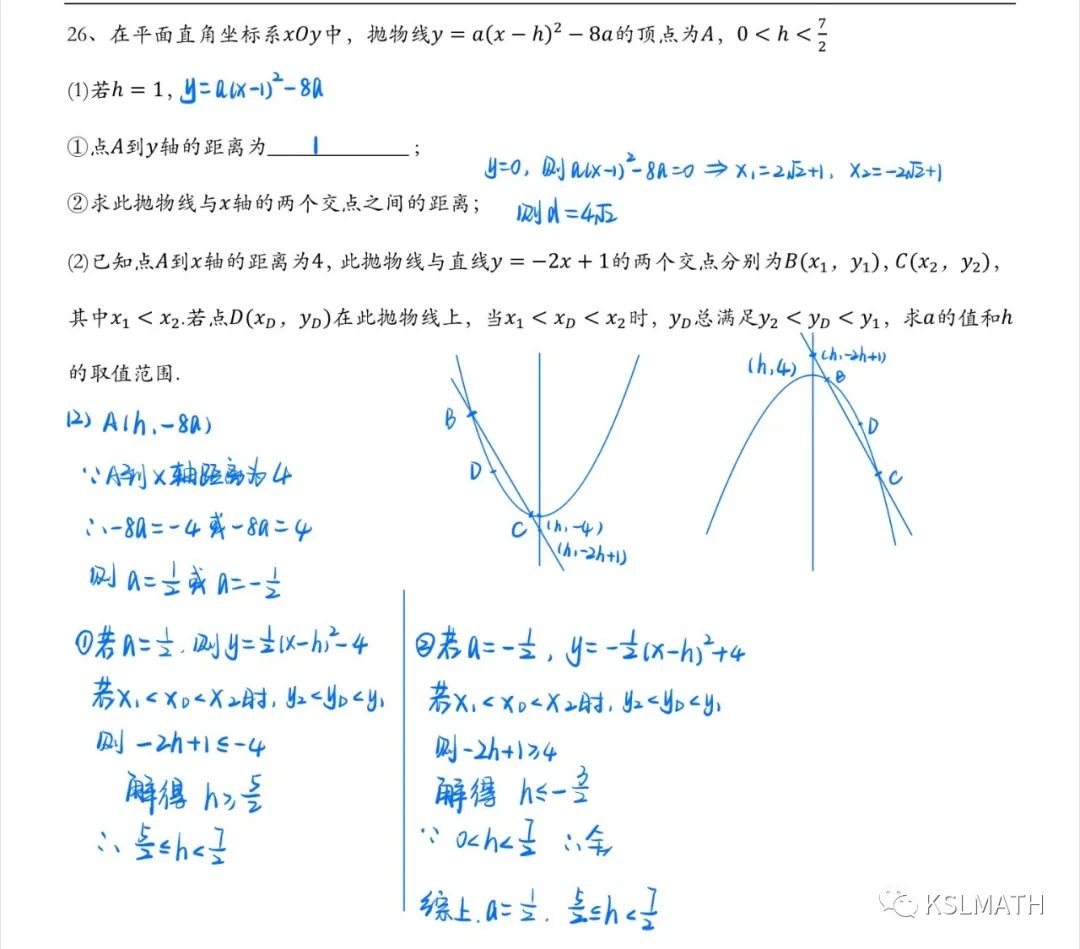 26、在平面直角坐标系xOy中，抛物线y = a(x − h)² − 8a的顶点为A，0 < h < 7/2
(1)若h = 1, y=a(x-1)²-8a
①点A到y轴的距离为 1 ;
y=0, 则a(x-1)²-8a=0 ⇒ x₁=2√2+1, x₂=-2√2+1
②求此抛物线与x轴的两个交点之间的距离；
则d=4√2
(2)已知点A到x轴的距离为4, 此抛物线与直线y = −2x + 1的两个交点分别为B(x₁，y₁), C(x₂，y₂),
其中x₁ < x₂.若点D(x_D，y_D)在此抛物线上，当x₁ < x_D < x₂时，y_D总满足y₂ < y_D < y₁，求a的值和h
的取值范围.
B
D
C
(h,-4)
(h,-2h+1)
(h,4)
(h,-2h+1)
B
D
C
(2) A(h,-8a)
∵A到x轴距离为4
∴-8a=-4或-8a=4
则 a=1/2或a=-1/2
①若a=1/2, 则y=1/2(x-h)²-4
若x₁<x_D<x₂时, y₂<y_D<y₁
则 -2h+1≤-4
解得 h≥5/2
∴ 5/2≤h<7/2
②若a=-1/2, y=-1/2(x-h)²+4
若x₁<x_D<x₂时, y₂<y_D<y₁
则-2h+1≥4
解得 h≤-3/2
∵ 0<h<7/2 ∴舍
综上, a=1/2, 5/2≤h<7/2
KSLMATH